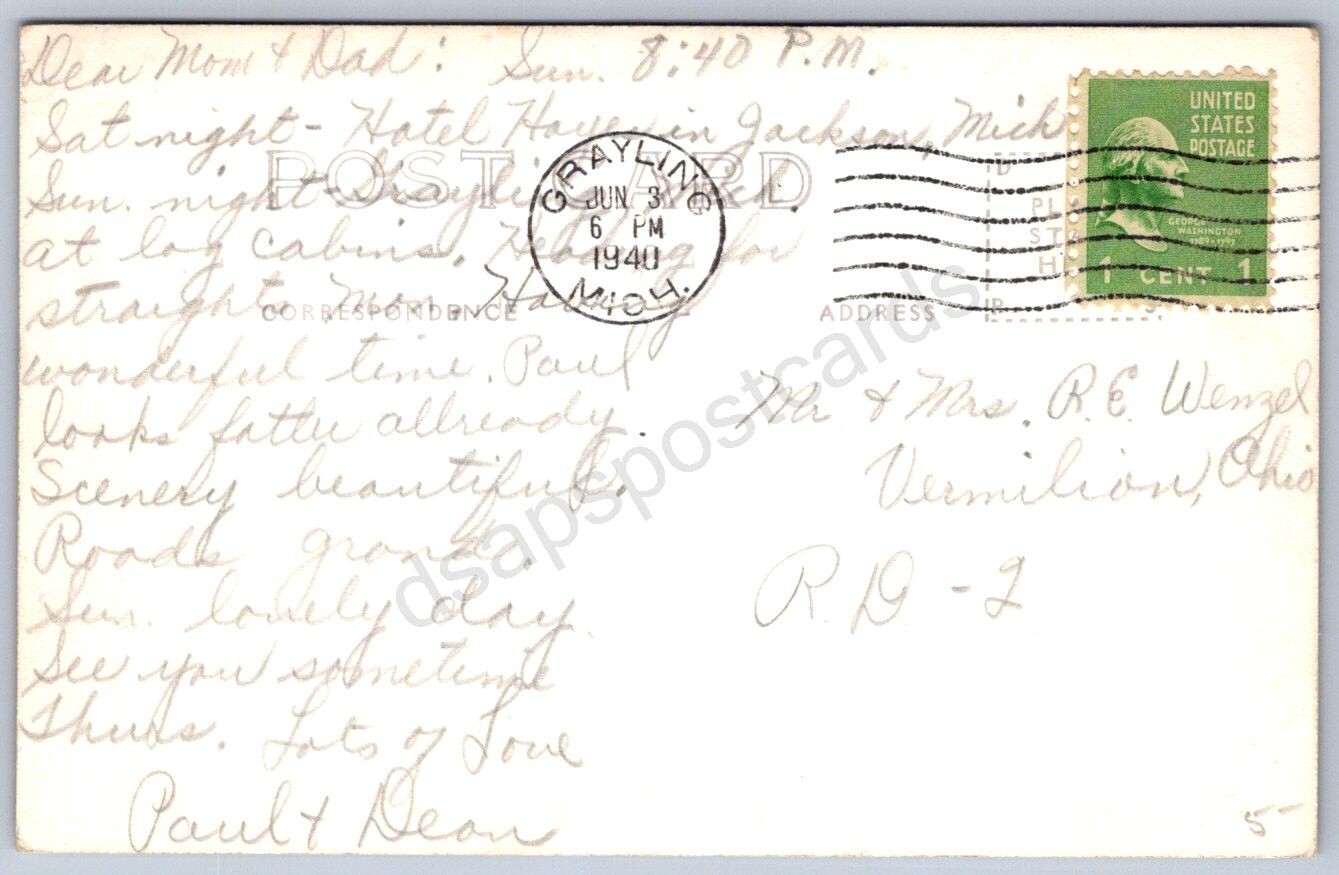 Dear Mom & Dad: Sun. 8:40 P.M.
Sat night - Hotel Hayes in Jackson, Mich
Sun. night - Grayling Mich.
at log cabins. Heading for
straights Mon. Having
wonderful time. Paul
looks fatter allready
Scenery beautiful.
Roads grand.
Sun. lovely day.
See you sometime
Thurs. Lots of Love
Paul & Dean
POST CARD
CORRESPONDENCE
ADDRESS
GRAYLING
JUN 3
6 PM
1940
MICH.
UNITED
STATES
POSTAGE
GEORGE
WASHINGTON
1789-1797
1 CENT 1
Mr & Mrs. R.E. Wenzel
Vermilion, Ohio
R.D - 2
5-
dsapspostcards